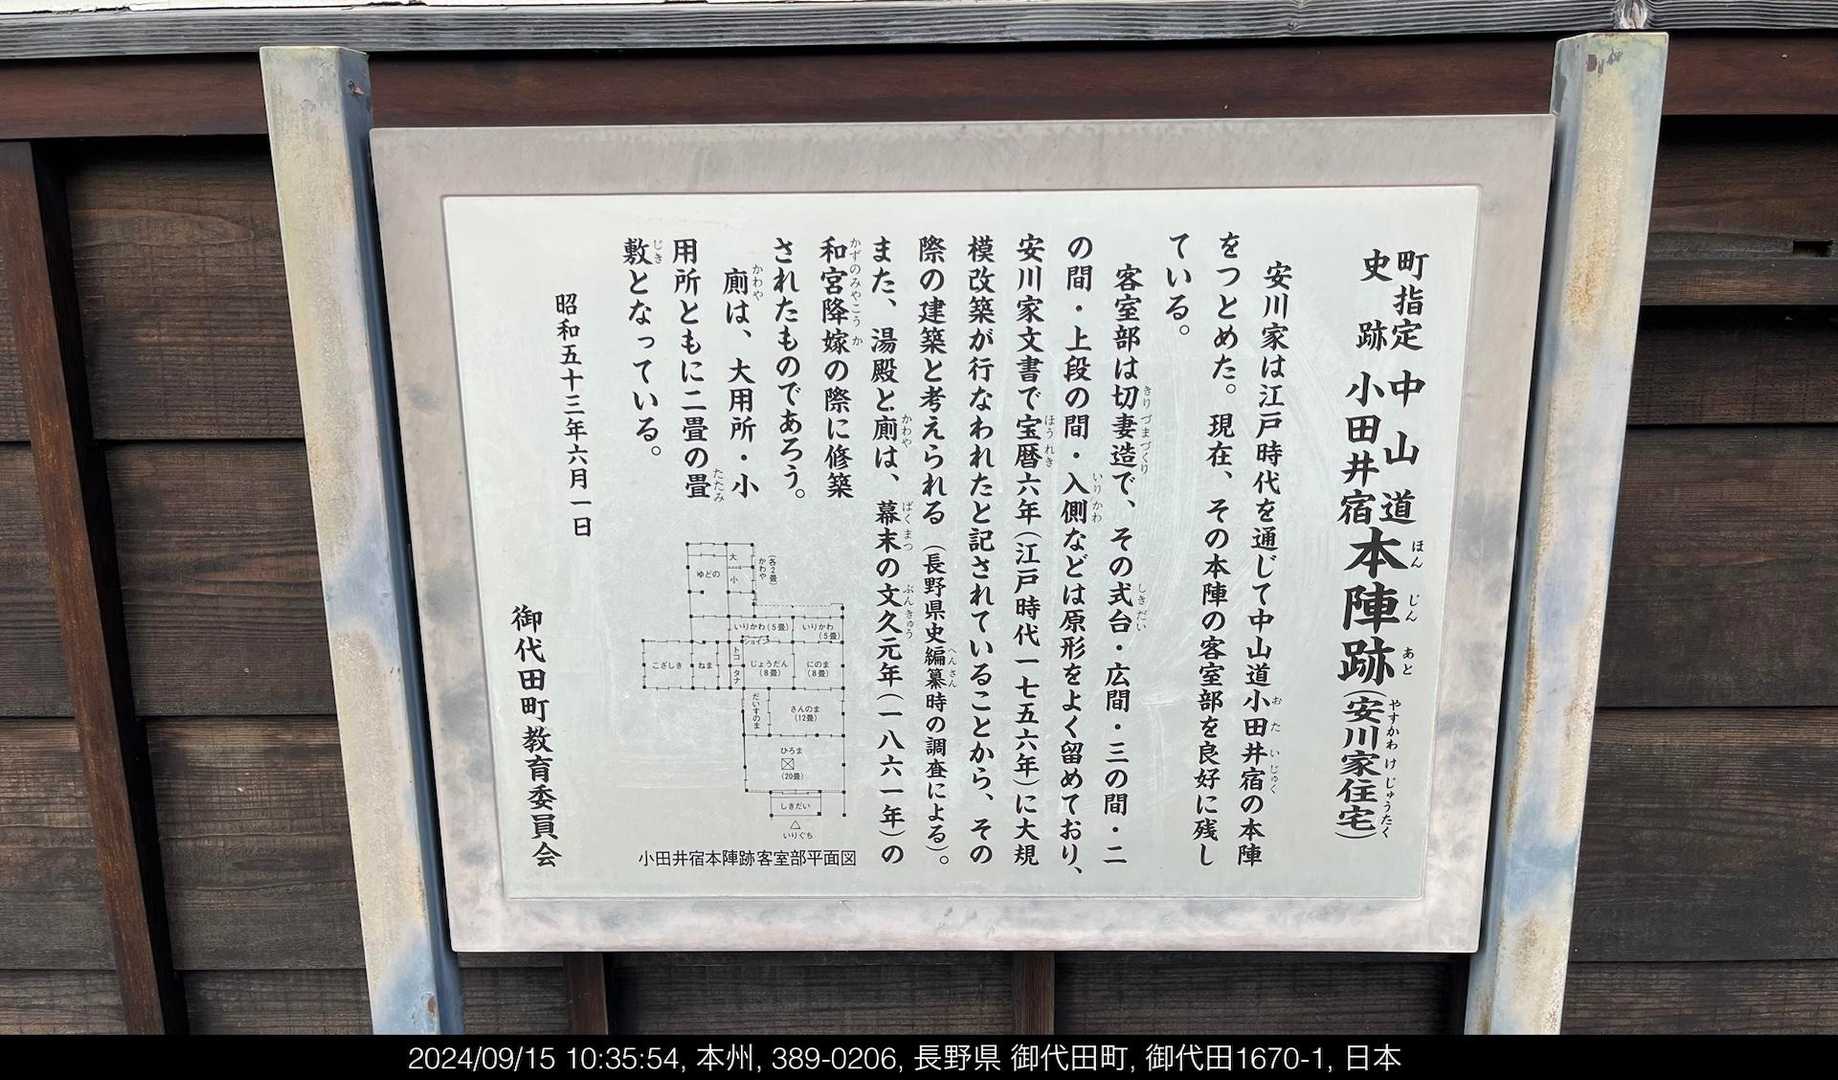 町指定
史跡
中山道
小田井宿
本陣跡(安川家住宅)
ほんじんあと
やすかわけじゅうたく
安川家は江戸時代を通じて中山道小田井宿の本陣
おたいじゅく
をつとめた。現在、その本陣の客室部を良好に残し
ている。
客室部は切妻造で、その式台・広間・三の間・二
きりづまづくり
しきだい
の間・上段の間・入側などは原形をよく留めており、
いりかわ
安川家文書で宝暦六年(江戸時代一七五六年)に大規
ほうれき
模改築が行なわれたと記されていることから、その
際の建築と考えられる(長野県史編纂時の調査による)。
へんさん
また、湯殿と廁は、幕末の文久元年(一八六一年)の
かわや
ばくまつ
ぶんきゅう
和宮降嫁の際に修築
かずのみやこうか
されたものであろう。
廁は、大用所・小
かわや
用所ともに二畳の畳
たたみ
敷となっている。
じき
昭和五十三年六月一日
御代田町教育委員会
大
小
かわや
(各2畳)
ゆどの
いりかわ(5畳)
いりかわ
(5畳)
ショイン
トコ
タナ
こざしき
ねま
じょうだん
(8畳)
にのま
(8畳)
だいすのま
さんのま
(12畳)
ひろま
(20畳)
しきだい
△
いりぐち
小田井宿本陣跡客室部平面図
2024/09/15 10:35:54, 本州, 389-0206, 長野県 御代田町, 御代田1670-1, 日本